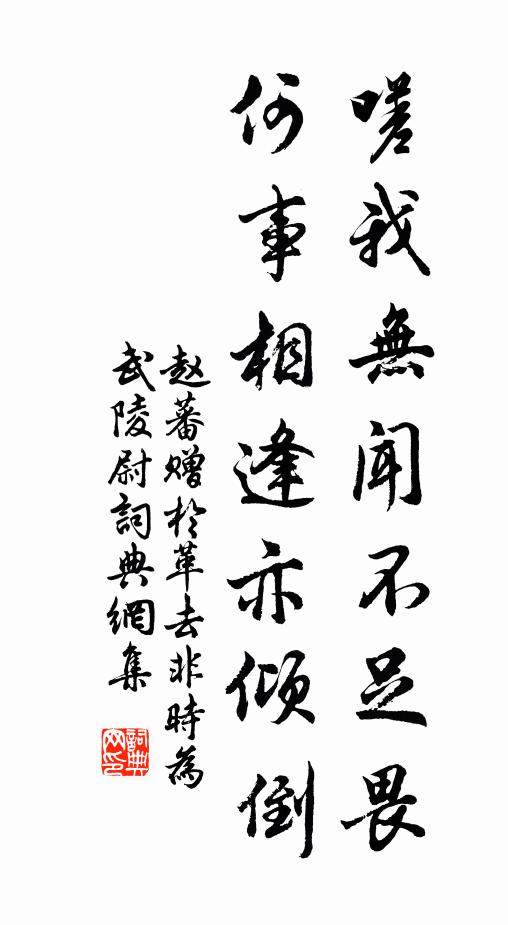 嗟我無闻不足畏
何事相逢亦倾倒
赵蕃赠於革去非時為
武陵尉詞典網集
詞典
网印